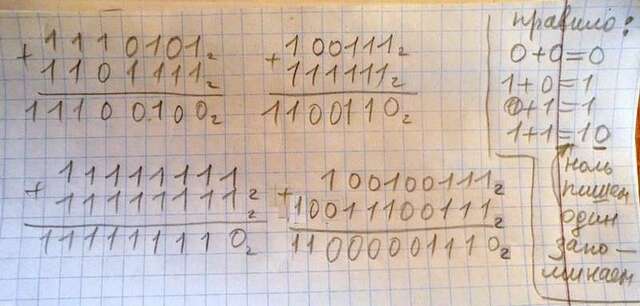 + 1110101₂
1101111₂
11100100₂
+ 100111₂
111111₂
1100110₂
+ 11111111
11111111₂
111111110₂
+ 100100111₂
10011100111₂
11000001110₂
правило:
0+0=0
1+0=1
0+1=1
1+1=10
ноль
пишем
один
запо-
минаем